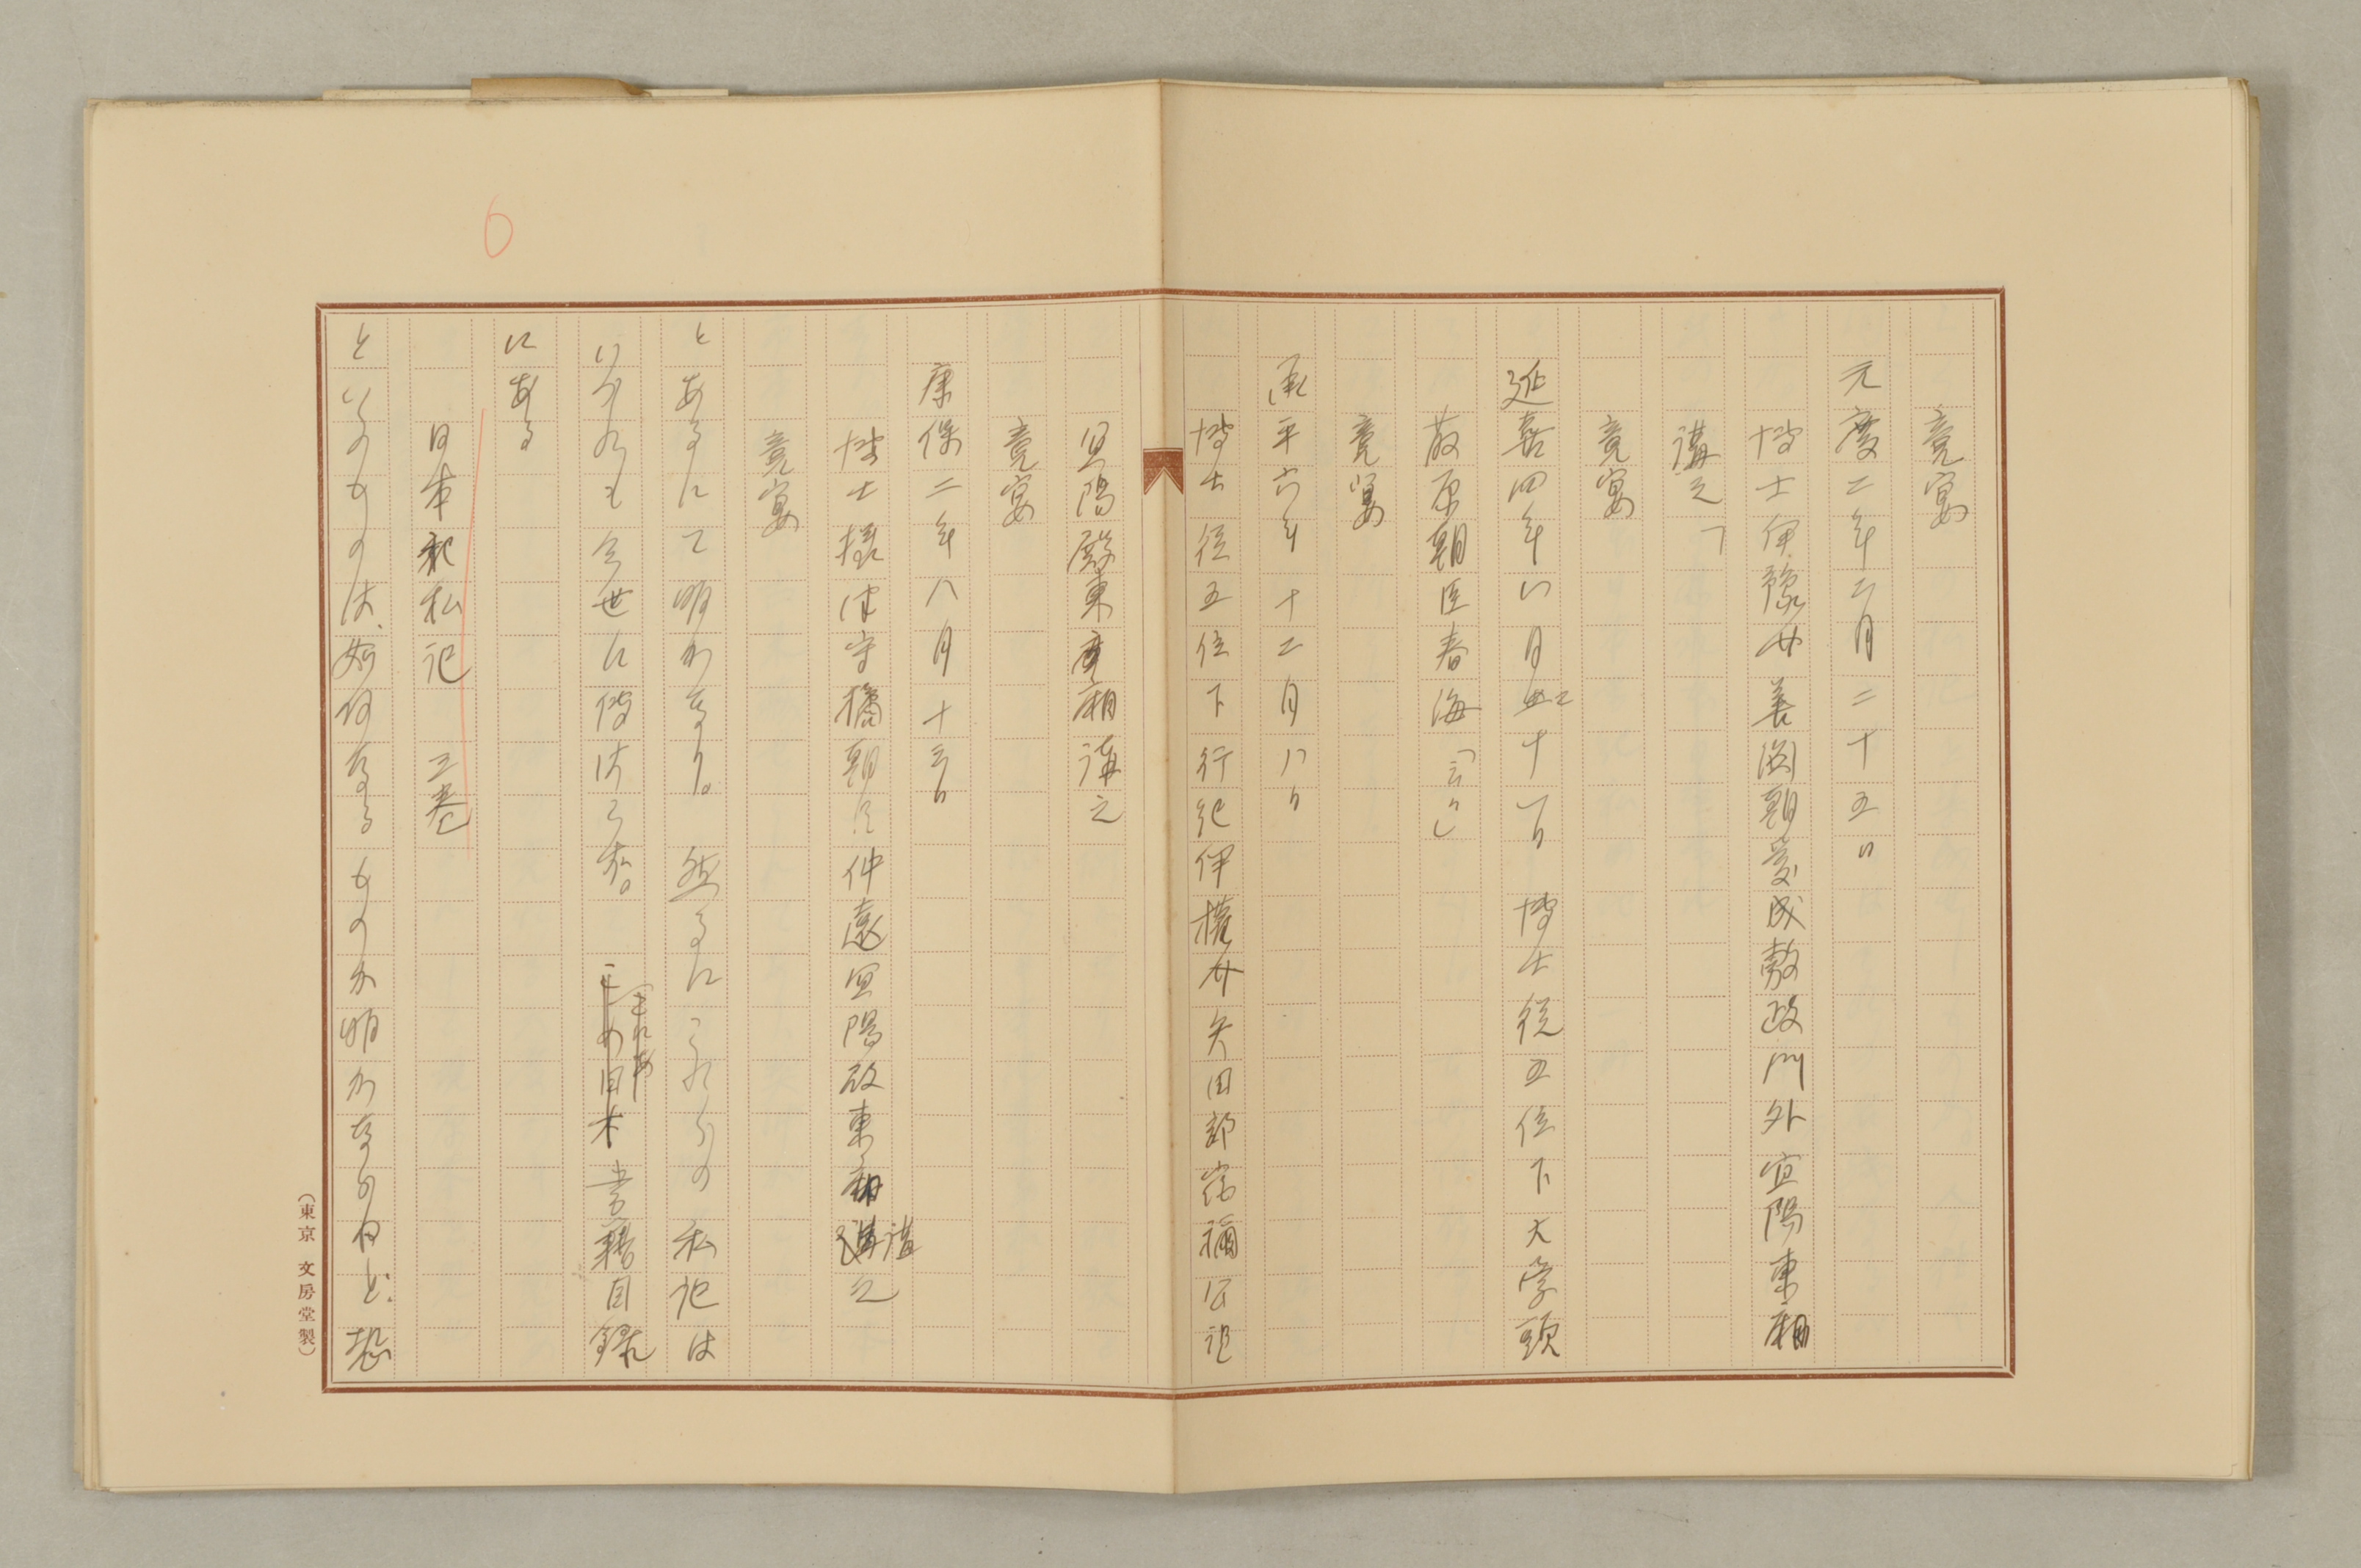 竟宴
元慶二年二月二十五日
博士伊豫介善淵朝臣愛成敷政門外宜陽東廂
講之
竟宴
延喜四年八月廿一日 博士従五位下大学頭
藤原朝臣春海「云々」
竟宴
承平六年十二月八日
博士従五位下行紀伊権介矢田部宿禰公望
宜陽殿東廂講之
竟宴
康保二年八月十三日
博士摂津守橘朝臣仲遠宜陽殿東廂講之
竟宴
とあるにて明かなり。然るにこれらの私記は
いづれも今世に傳はらず。 書籍目録
にある
日本紀私記 三巻
といふものは、如何なるものか明かならねど、恐
(東京 文房堂製)
6